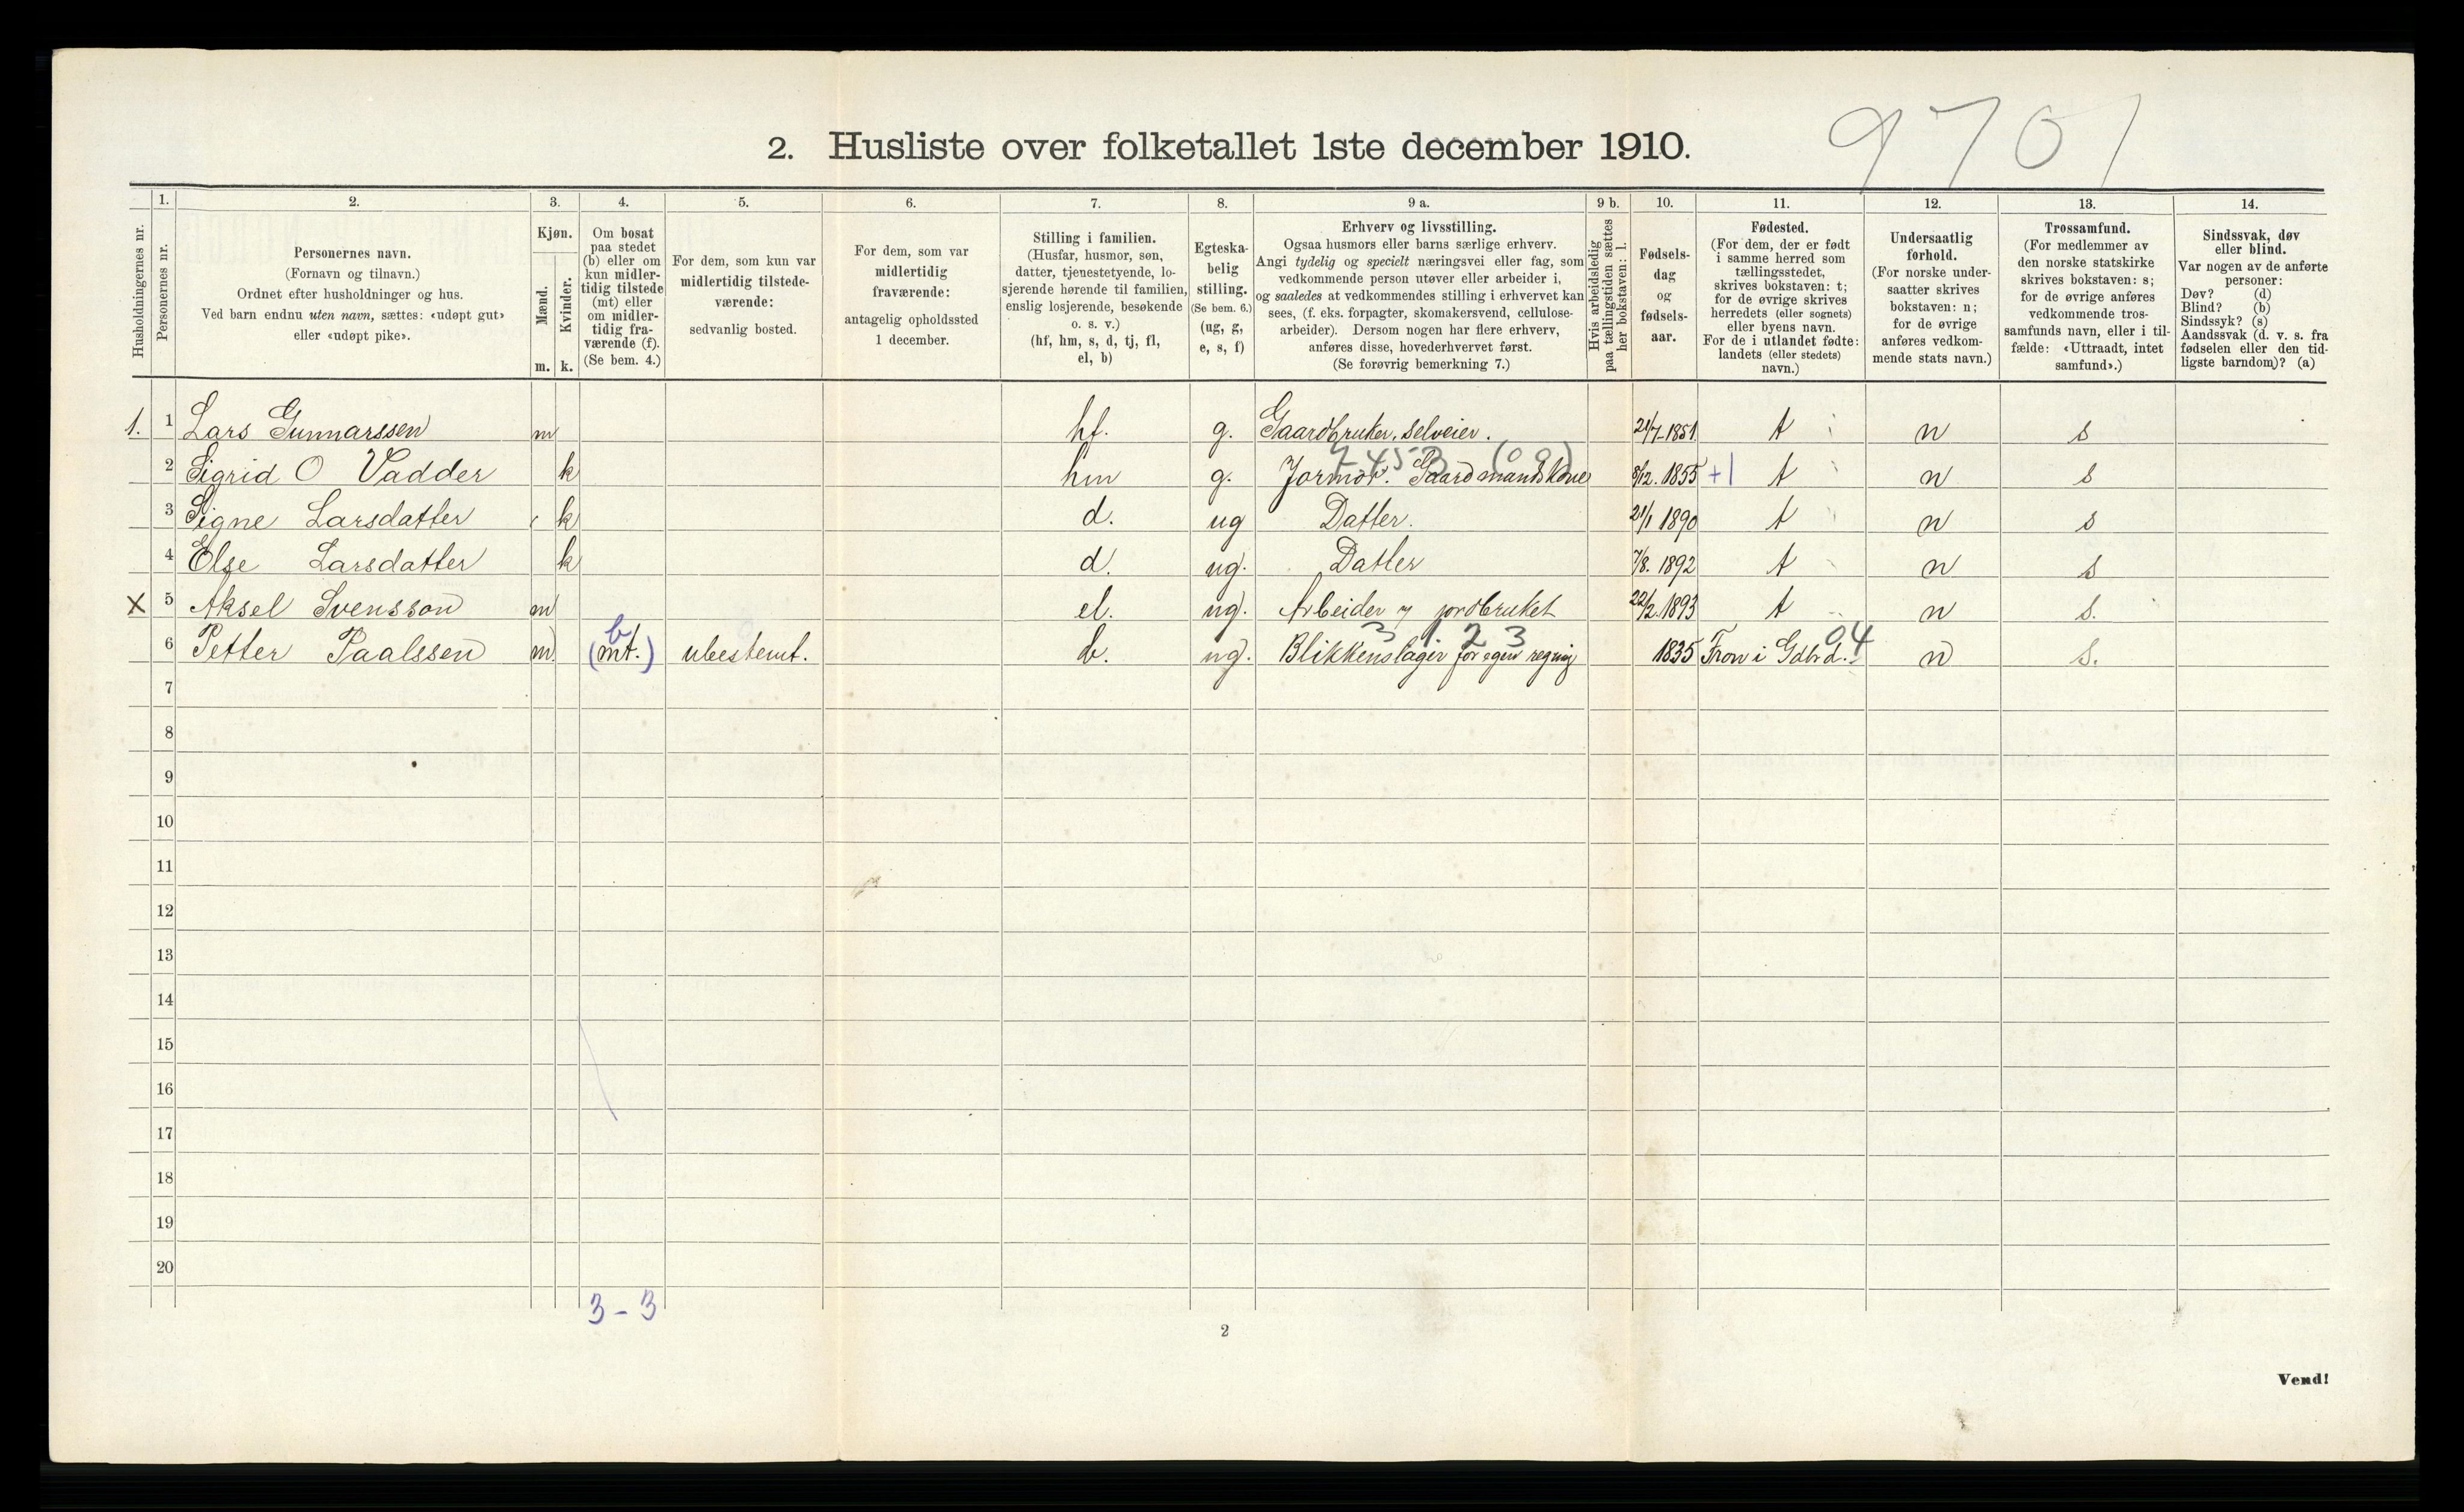 9701
2. Husliste over folketallet 1ste december 1910.
Husholdningernes nr.
1.
Personernes nr.
2.
Personernes navn.
(Fornavn og tilnavn.)
Ordnet efter husholdninger og hus.
Ved barn endnu uten navn, sættes: «udøpt gut»
eller «udøpt pike».
3.
Kjøn.
Mænd.
Kvinder.
m. k.
4.
Om bosat
paa stedet
(b) eller om
kun midler-
tidig tilstede
(mt) eller
om midler-
tidig fra-
værende (f).
(Se bem. 4.)
5.
For dem, som kun var
midlertidig tilstede-
værende:
sedvanlig bosted.
6.
For dem, som var
midlertidig
fraværende:
antagelig opholdssted
1 december.
7.
Stilling i familien.
(Husfar, husmor, søn,
datter, tjenestetyende, lo-
sjerende hørende til familien,
enslig losjerende, besøkende
o. s. v.)
(hf, hm, s, d, tj, fl,
el, b)
8.
Egteska-
belig
stilling.
(Se bem. 6.)
(ug, g,
e, s, f)
9 a.
Erhverv og livsstilling.
Ogsaa husmors eller barns særlige erhverv.
Angi tydelig og specielt næringsvei eller fag, som
vedkommende person utøver eller arbeider i,
og saaledes at vedkommendes stilling i erhvervet kan
sees, (f. eks. forpagter, skomakersvend, cellulose-
arbeider). Dersom nogen har flere erhverv,
anføres disse, hovederhvervet først.
(Se forøvrig bemerkning 7.)
9 b.
Hvis arbeidsledig
paa tællingstiden sættes
her bokstaven: l.
10.
Fødsels-
dag
og
fødsels-
aar.
11.
Fødested.
(For dem, der er født
i samme herred som
tællingsstedet,
skrives bokstaven: t;
for de øvrige skrives
herredets (eller sognets)
eller byens navn.
For de i utlandet fødte:
landets (eller stedets)
navn.)
12.
Undersaatlig
forhold.
(For norske under-
saatter skrives
bokstaven: n;
for de øvrige
anføres vedkom-
mende stats navn.)
13.
Trossamfund.
(For medlemmer av
den norske statskirke
skrives bokstaven: s;
for de øvrige anføres
vedkommende tros-
samfunds navn, eller i til-
fælde: «Uttraadt, intet
samfund».)
14.
Sindssvak, døv
eller blind.
Var nogen av de anførte
personer:
Døv? (d)
Blind? (b)
Sindssyk? (s)
Aandssvak (d. v. s. fra
fødselen eller den tid-
ligste barndom)? (a)
1. 1 Lars Gunnarssen m hf. g. Gaardbruker, selveier. 21/7-1851 t n s
2 Sigrid O Vadder k hm g. Jormor. Gaardmandskone 8/12. 1855 +1 t n s
3 Signe Larsdatter k d. ug Datter. 21/1 1890 t n s
4 Else Larsdatter k d. ug. Datter 7/8. 1892 t n s
X 5 Aksel Svensson m el. ug. Arbeider v jordbruket 22/2.1893 t n s.
3 1 2 3 04
6 Petter Paalssen m. b (mt.) ubestemt. b. ug. Blikkenslager for egen regnig 1835 Fron i Gdbrd. n s.
7
8
9
10
11
12
13
14
15
16
17
18
19
20
3 - 3
2
Vend!